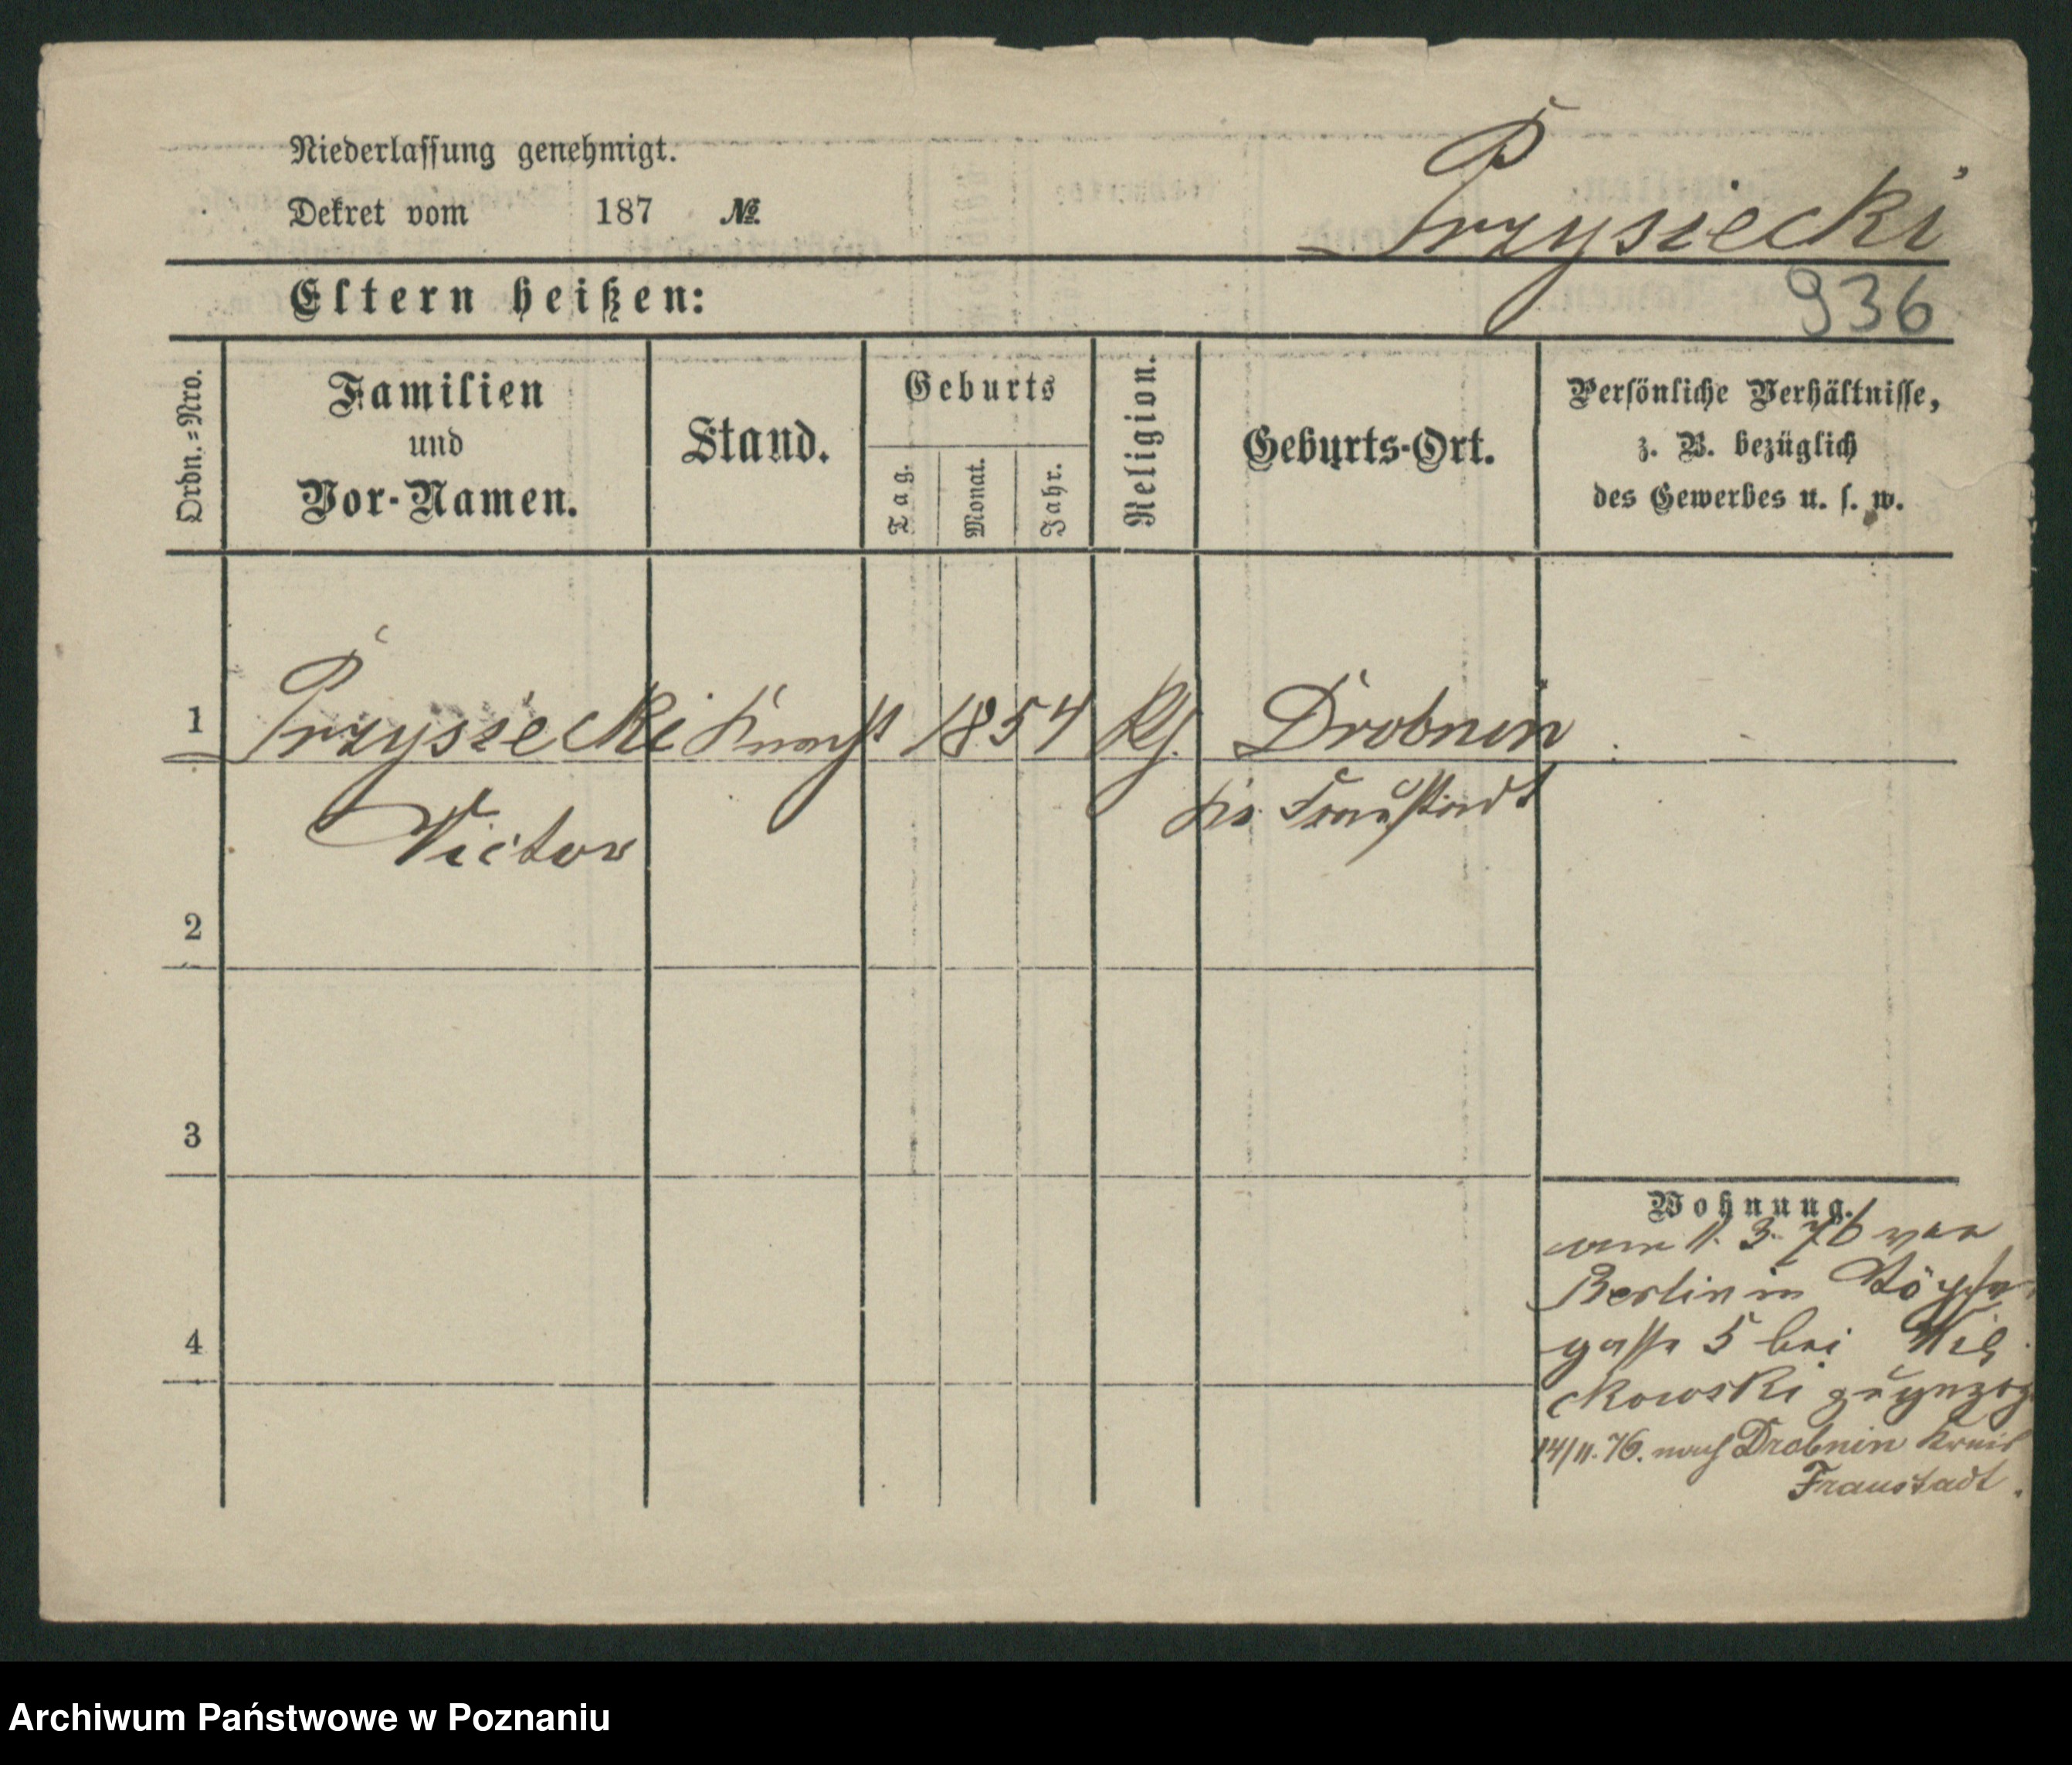 Niederlassung genehmigt.
Dekret vom 187 №
Przysiecki
Eltern heißen:
936
Ordn.-Nro.
Familien
und
Vor-Namen.
Stand.
Geburts
Tag.
Monat.
Jahr.
Religion.
Geburts-Ort.
Persönliche Verhältnisse,
z. B. bezüglich
des Gewerbes u. s. w.
1 Przysiecki Knecht 1854 Drobnin
Victor Kr. Fraustadt
2
3
4
Wohnung.
3. 76 von
Berlin in
gasse 5 bei
ckowski
14/11. 76. nach Drobnin Kreis
Fraustadt.
Archiwum Państwowe w Poznaniu